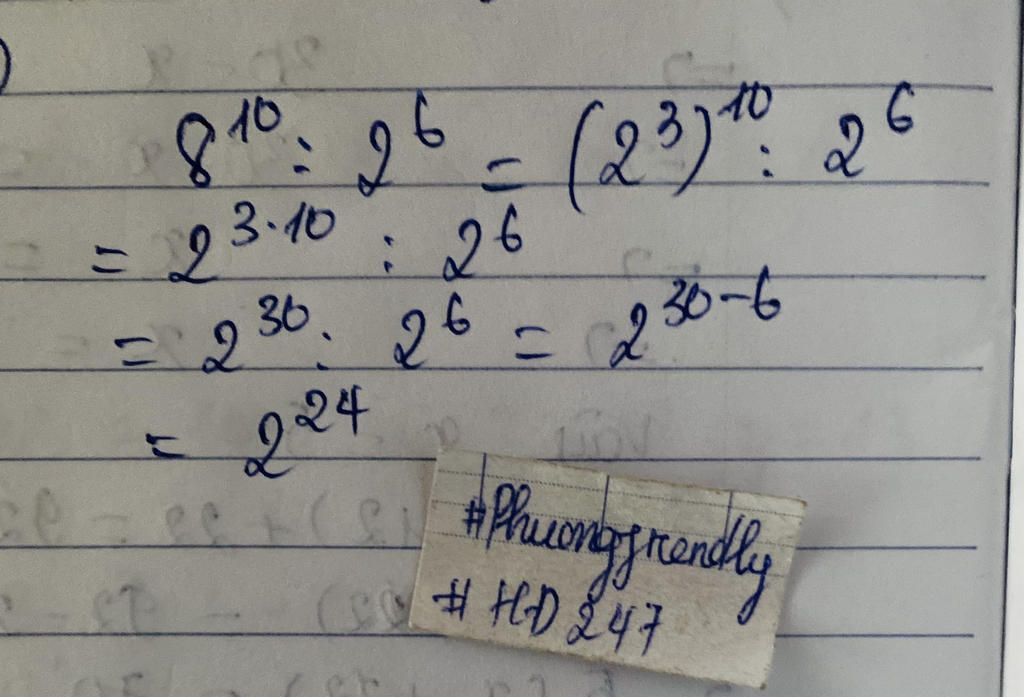 8^10 : 2^6 = (2^3)^10 : 2^6
= 2^3·10 : 2^6
= 2^30 : 2^6 = 2^30-6
= 2^24
#Phuongfriendly
# HD 247